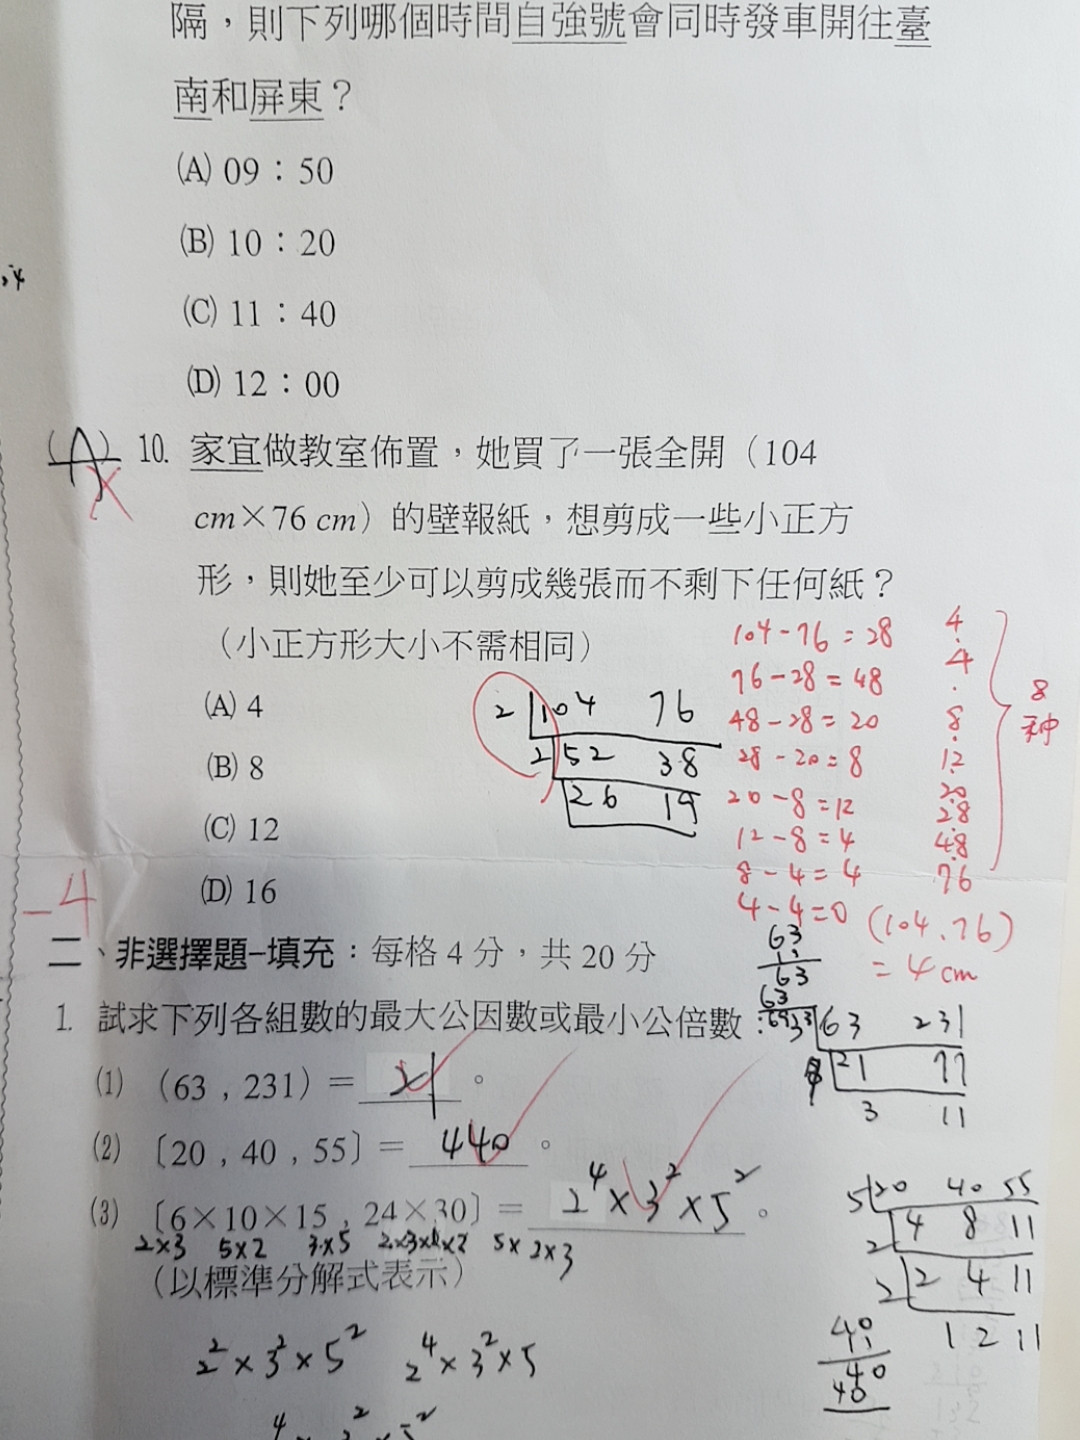 隔，則下列哪個時間自強號會同時發車開往臺
南和屏東？
(A) 09：50
(B) 10：20
(C) 11：40
(D) 12：00
(A) 10. 家宜做教室佈置，她買了一張全開（104
cm×76 cm）的壁報紙，想剪成一些小正方
形，則她至少可以剪成幾張而不剩下任何紙？
（小正方形大小不需相同）
(A) 4
(B) 8
(C) 12
(D) 16
2 104 76
2 52 38
26 19
104-76=28
76-28=48
48-28=20
28-20=8
20-8=12
12-8=4
8-4=4
4-4=0
4
4
8
12
20
28
48
76
8
种
(104.76)
=4cm
-4
二、非選擇題-填充：每格 4 分，共 20 分
1. 試求下列各組數的最大公因數或最小公倍數
(1) （63 , 231）= 21 。
(2) 〔20 , 40 , 55〕= 440 。
(3) 〔6×10×15 , 24×30〕= 2⁴×3²×5² 。
2×3 5×2 3×5 5×2×3
（以標準分解式表示）
2²×3²×5² 2⁴×3²×5
63
63
3 63 231
21 77
3 11
5 20 40 55
2 4 8 11
2 2 4 11
1 2 11
40
40